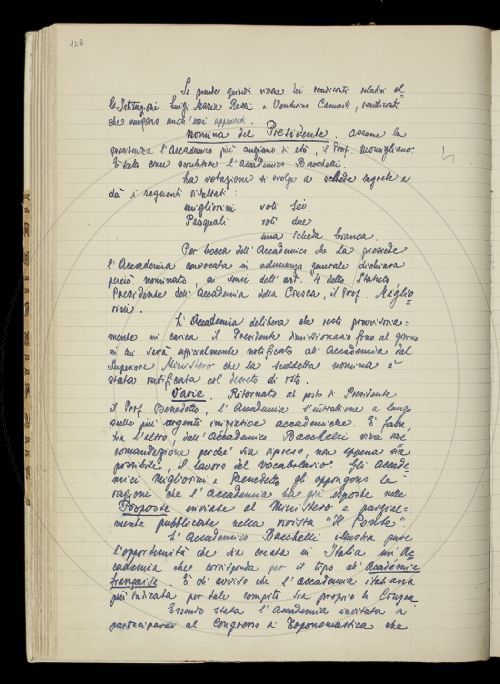 128
Si prende quindi visione dei rendiconti relativi al=
le Istituzioni Luigi Maria Rezzi e Venturino Camaiti, rendiconti
che vengono anch'essi approvati.
Nomina del Presidente. Assume la
presidenza l'Accademico più anziano di età, il Prof. Momigliano.
È stato come scrutatore l'Accademico Bacchelli.
La votazione si svolge a schede segrete e
dà i seguenti risultati:
Migliorini voti sei
Pasquali voti due
una scheda bianca
Per bocca dell'Accademico che la presiede
l'Accademia convocata in adunanza generale dichiara
perciò nominato, ai sensi dell'art. 4 dello Statuto
Presidente dell'Accademia della Crusca, il Prof. Miglio=
rini.
L'Accademia delibera che resti provvisoria=
mente in carica il Presidente dimissionario fino al giorno
in cui sarà ufficialmente notificato all'Accademia dal
Superiore Ministero che la suddetta nomina è
stata ratificata col decreto di rito.
Varie. Ritornato al posto di Presidente
il Prof. Benedetto, l'Accademia s'intrattiene a lungo
sulle più urgenti accademiche. È fatta,
tra l'altro, dall'Accademico Bacchelli viva rac
comandazione perché sia ripreso, non appena sia
possibile, il lavoro del vocabolario. Gli Accade
mici Migliorini e Benedetto gli oppongono le
ragioni che l'Accademia ha già esposte nelle
Proposte inviate al Ministero e parzial=
mente pubblicate nella rivista "Il Ponte".
L'Accademico Bacchelli illustra pure
l'opportunità che sia creata in Italia un'Ac
cademia che corrisponda per il tipo all'Académie
française. È di avviso che l'Accademia italiana
più indicata per tale compito sia proprio la Crusca
Essendo stata l'Accademia invitata a
partecipare al Congresso di Toponomastica che